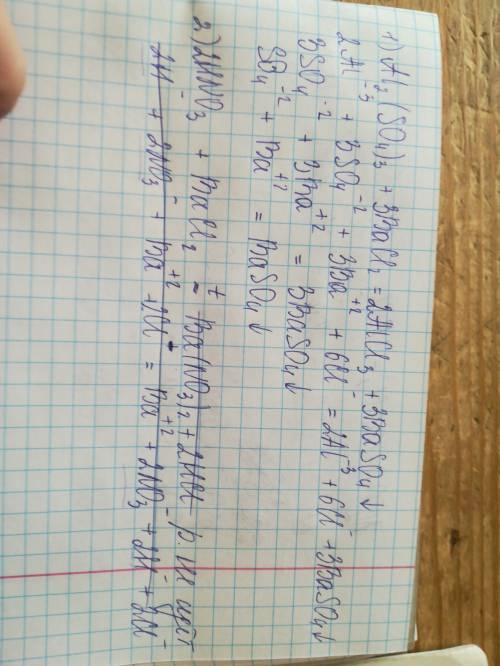 1) Al₂(SO₄)₃ + 3BaCl₂ = 2AlCl₃ + 3BaSO₄↓
2Al⁻³ + 3SO₄⁻² + 3Ba⁺² + 6Cl⁻ = 2Al⁻³ + 6Cl⁻ + 3BaSO₄↓
3SO₄⁻² + 3Ba⁺² = 3BaSO₄↓
SO₄⁻² + Ba⁺² = BaSO₄↓
2) 2HNO₃ + BaCl₂ = Ba(NO₃)₂ + 2HCl р не идёт
2H + 2NO₃⁻ + Ba⁺² + 2Cl⁻ = Ba⁺² + 2NO₃⁻ + 2H + 2Cl⁻